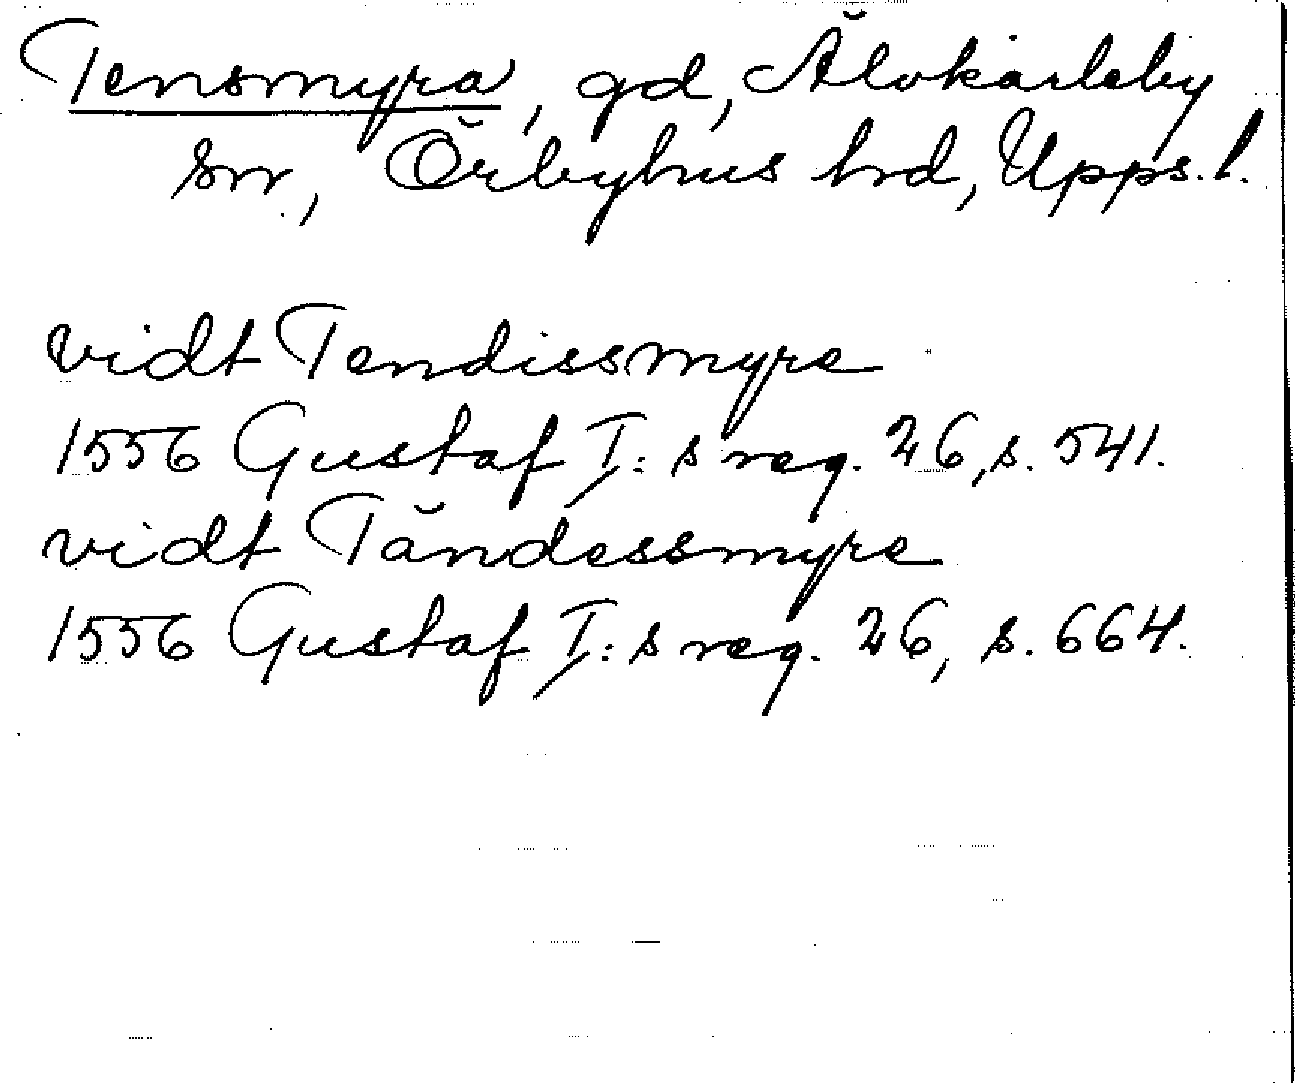 Tensmyra, gd, Älvkarleby
sn, Örbyhus hd, Upps. l.
vidt Tendissmyre
1556 Gustaf I:s reg. 26, s. 541.
vidt Tändessmyre
1556 Gustaf I:s reg. 26, s. 664.